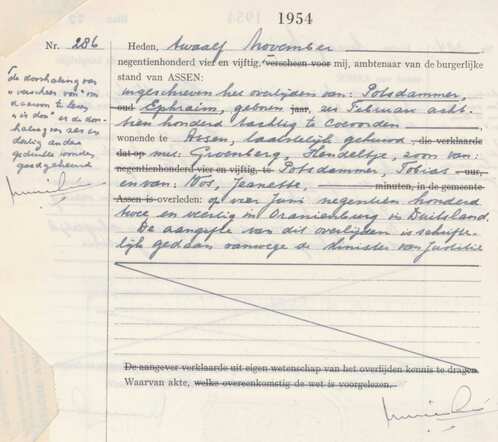 1954
Nr. 286
Heden, twaalf November
negentienhonderd vier en vijftig, verscheen voor mij, ambtenaar van de burgerlijke
stand van ASSEN:
ingeschreven het overlijden van: Potsdammer,
oud Ephraim, geboren jaar, zes Februari acht-
tien honderd tachtig te Coevorden
wonende te Assen, laatstelijk gehuwd, die verklaarde
dat op met: Groenberg, Hendeltje, zoon van:
negentienhonderd vier en vijftig, te Potsdammer, Tobias uur,
en van: Vos, Jeanette, minuten, in de gemeente
Assen is overleden: op vier Juni negentien honderd
twee en veertig in Oranienburg in Duitsland.
De aangifte van dit overlijden is schrifte-
lijk gedaan vanwege de Minister van Justitie
De aangever verklaarde uit eigen wetenschap van het overlijden kennis te dragen.
Waarvan akte, welke overeenkomstig de wet is voorgelezen.
De doorhaling van
"verscheen voor" om
daarvoor te lezen
"is door" en de door-
haling van zes en
dertig andere
gedrukte woorden
goedgekeurd